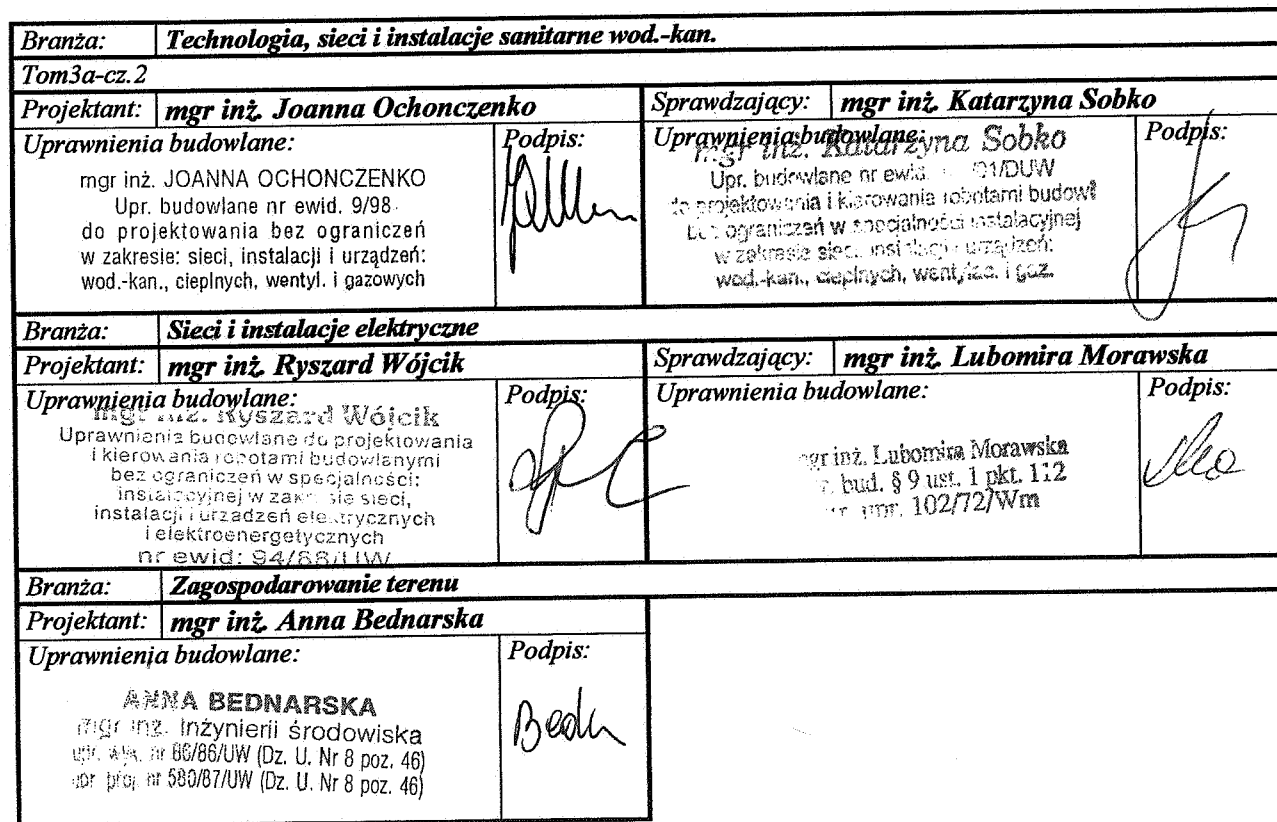 Branża: Technologia, sieci i instalacje sanitarne wod.-kan.
Tom3a-cz.2
Projektant: mgr inż. Joanna Ochonczenko
Sprawdzający: mgr inż. Katarzyna Sobko
Uprawnienia budowlane:
Podpis:
mgr inż. JOANNA OCHONCZENKO
Upr. budowlane nr ewid. 9/98
do projektowania bez ograniczeń
w zakresie: sieci, instalacji i urządzeń:
wod.-kan., cieplnych, wentyl. i gazowych
Uprawnienia budowlane:
Podpis:
mgr inż. Katarzyna Sobko
Upr. budowlane nr ewid. 01/DUW
do projektowania i kierowania robotami budowl
bez ograniczeń w specjalności instalacyjnej
w zakresie sieci, instalacji i urządzeń:
wod.-kan., cieplnych, went. i gaz.
Branża: Sieci i instalacje elektryczne
Projektant: mgr inż. Ryszard Wójcik
Sprawdzający: mgr inż. Lubomira Morawska
Uprawnienia budowlane:
Podpis:
mgr inż. Ryszard Wójcik
Uprawnienia budowlane do projektowania
i kierowania robotami budowlanymi
bez ograniczeń w specjalności:
instalacyjnej w zakresie sieci,
instalacji i urządzeń elektrycznych
i elektroenergetycznych
nr ewid: 94/88/UW
Uprawnienia budowlane:
Podpis:
mgr inż. Lubomira Morawska
bud. § 9 ust. 1 pkt. 112
upr. 102/72/Wm
Branża: Zagospodarowanie terenu
Projektant: mgr inż. Anna Bednarska
Uprawnienia budowlane:
Podpis:
ANNA BEDNARSKA
mgr inż. Inżynierii środowiska
upr. wyk. nr 86/86/UW (Dz. U. Nr 8 poz. 46)
upr. proj. nr 580/87/UW (Dz. U. Nr 8 poz. 46)